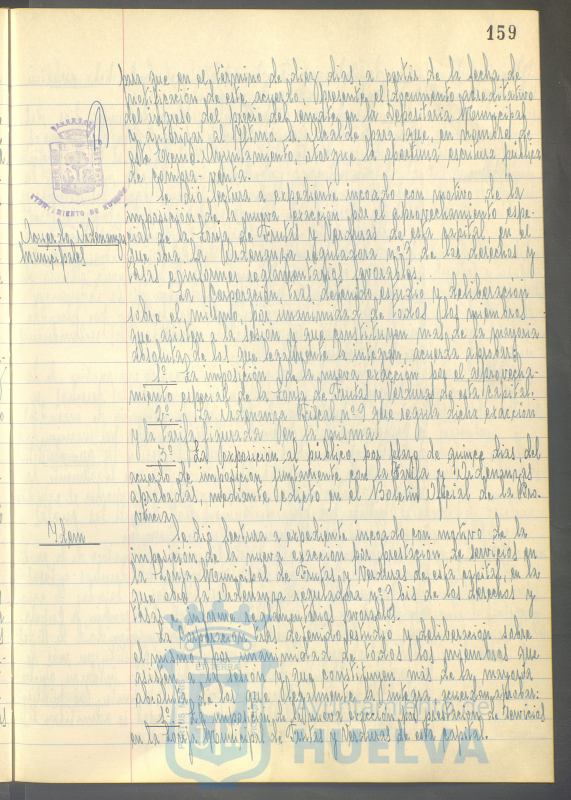 159
para que en el término de diez dias, a partir de la fecha de
notificación de este acuerdo, presente el documento acreditativo
del ingreso del precio del remate, en la Depositaría Municipal
y autorizar al Iltmo. Sr. Alcalde para que, en nombre de
este Excmo. Ayuntamiento, otorgue la oportuna escritura pública
de compra-venta.
Acuerdo, Ordenanzas
municipales
Se dió lectura a expediente incoado con motivo de la
imposición de la nueva exacción por el aprovechamiento espe-
cial de la Lonja de Frutas y Verduras de esta capital, en el
que obra la Ordenanza reguladora nº 9 de los derechos y
tasas e informes reglamentarios favorables.
La Corporación, tras detenido estudio y deliberación
sobre el mismo, por unanimidad de todos los miembros
que asisten a la sesión y que constituyen más de la mayoría
absoluta de los que legalmente la integran, acuerda aprobar:
1º La imposición de la nueva exacción por el aprovecha-
miento especial de la Lonja de Frutas y Verduras de esta capital.
2º La Ordenanza Fiscal nº 9 que regula dicha exacción
y la tarifa figurada en la misma.
3º La exposición al público, por plazo de quince dias, del
acuerdo de imposición juntamente con la Tarifa y Ordenanzas
aprobadas, mediante edicto en el Boletín Oficial de la Pro-
vincia.
Idem
Se dió lectura a expediente incoado con motivo de la
imposición de la nueva exacción por prestación de servicios en
la Lonja Municipal de Frutas y Verduras de esta capital, en la
que obra la Ordenanza reguladora nº 9 bis de los derechos y
tasas e informe reglamentarios favorables.
La Corporación, tras detenido estudio y deliberación sobre
el mismo, por unanimidad de todos los miembros que
asisten a la sesión y que constituyen más de la mayoría
absoluta de los que legalmente la integra, acuerdan aprobar:
1º La imposición de la nueva exacción por prestación de Servicios
en la Lonja Municipal de Frutas y Verduras de esta capital.
AYUNTAMIENTO DE HUELVA
Ayuntamiento de
HUELVA